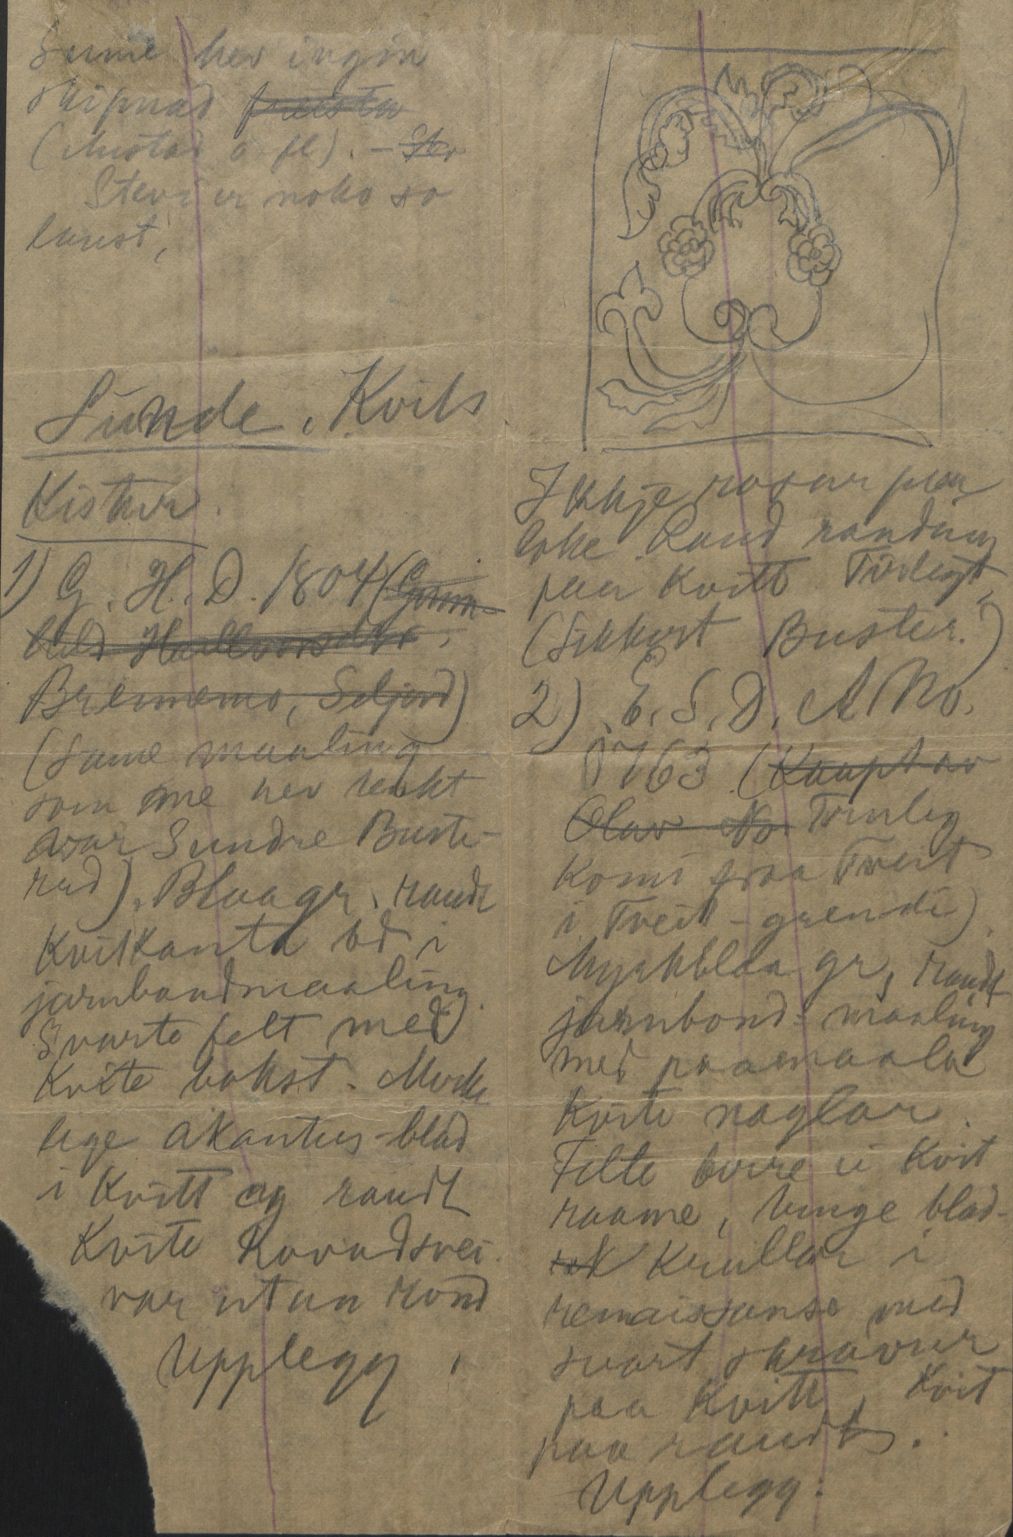 Sume hev ingin
skipnad freista
(Mustad o. fl). –
Stev er noko so
laust,
Sunde, Kvits
Kistur.
1) G. H. D. 1804 (Gunn
hild Hallvorsdtr.
Bremmemo, Seljord)
(Same maaling
som me hev tenkt
var Sundre Buste-
rud). Blaagr. raudt
Kvitkanta bd i
jarnbandmaaling.
Svarte felt med
Kvite bokst. Merke
lege akantus-blad
i Kvitt og raudt
Kvite Hovudsvei.
var utan rond
Upplegg,
Ikkje rosur paa
loke. Raud randing
paa Kvitt. Tirlegt,
(Sikkert Buster.)
2) E. S. D. ANo.
1763 (Kaupt av
Olav No Truleg
Komi fraa Tveit
i Tveit-grendi).
Myrkblaa gr, raudt
jarnbond-maaling
med paamaala
Kvite naglar.
Felte bore i Kvit
raame, lange blad-
Krullar i
renaissanse med
svart skravur
paa Kvitt, Kvit
paa raudt.
Upplegg: